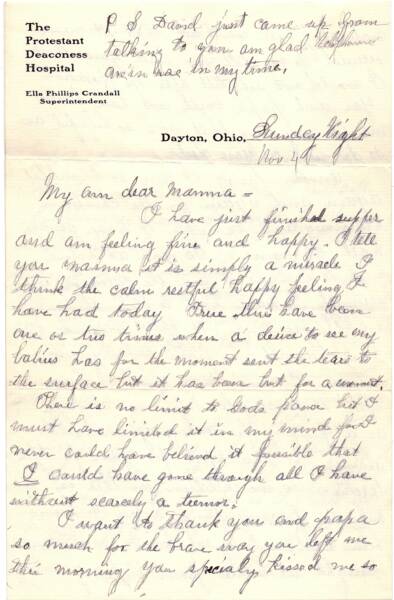 The
Protestant
Deaconess
Hospital
Ella Phillips Crandall
Superintendent
P S David just came up from
talking to you am glad telephones
are in use in my time.
Dayton, Ohio, Sunday Night
Nov 4
My own dear Mamma =
I have just finished supper
and am feeling fine and happy. I tell
you mamma it is simply a miracle I
think the calm restful happy feeling I
have had today True there have been
one or two times when a desire to see my
babies has for the moment sent the tears to
the surface but it has been but for a moment.
There is no limit to Gods power but I
must have limited it in my mind for I
never could have believed it possible that
I could have gone through all I have
without scarcely a tremor.
I want to thank you and papa
so much for the brave way you left me
this morning you specialy kissed me so